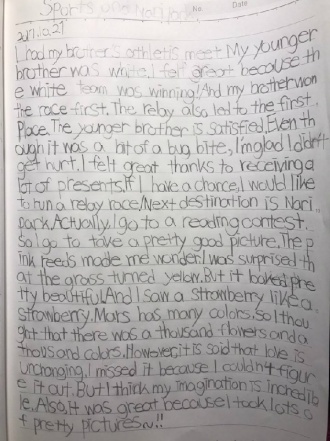 Sports and Nari park
No. Date
2017.10.27
I had my brother's athletic meet. My younger
brother was white. I felt great because th
e white team was winning! And my brother won
the race first. The relay also led to the first
place. The younger brother is satisfied. Even th
ough it was a bit of a bug bite, I'm glad I didn't
get hurt. I felt great thanks to receiving a
lot of presents. If I have a chance, I would like
to run a relay race. Next destination is Nari
park. Actually, I go to a reading contest.
So I go to take a pretty good picture. The p
ink reeds made me wonder. I was surprised th
at the grass turned yellow. But it looked pre
tty beautiful. And I saw a strawberry like a
strawberry. Mars has many colors. So I thou
ght that there was a thousand flowers and a
thousand colors. However, it is said that love is
unchanging. I missed it because I couldn't figur
e it out. But I think my imagination is incredib
le. Also, it was great because I took lots o
f pretty pictures~!!